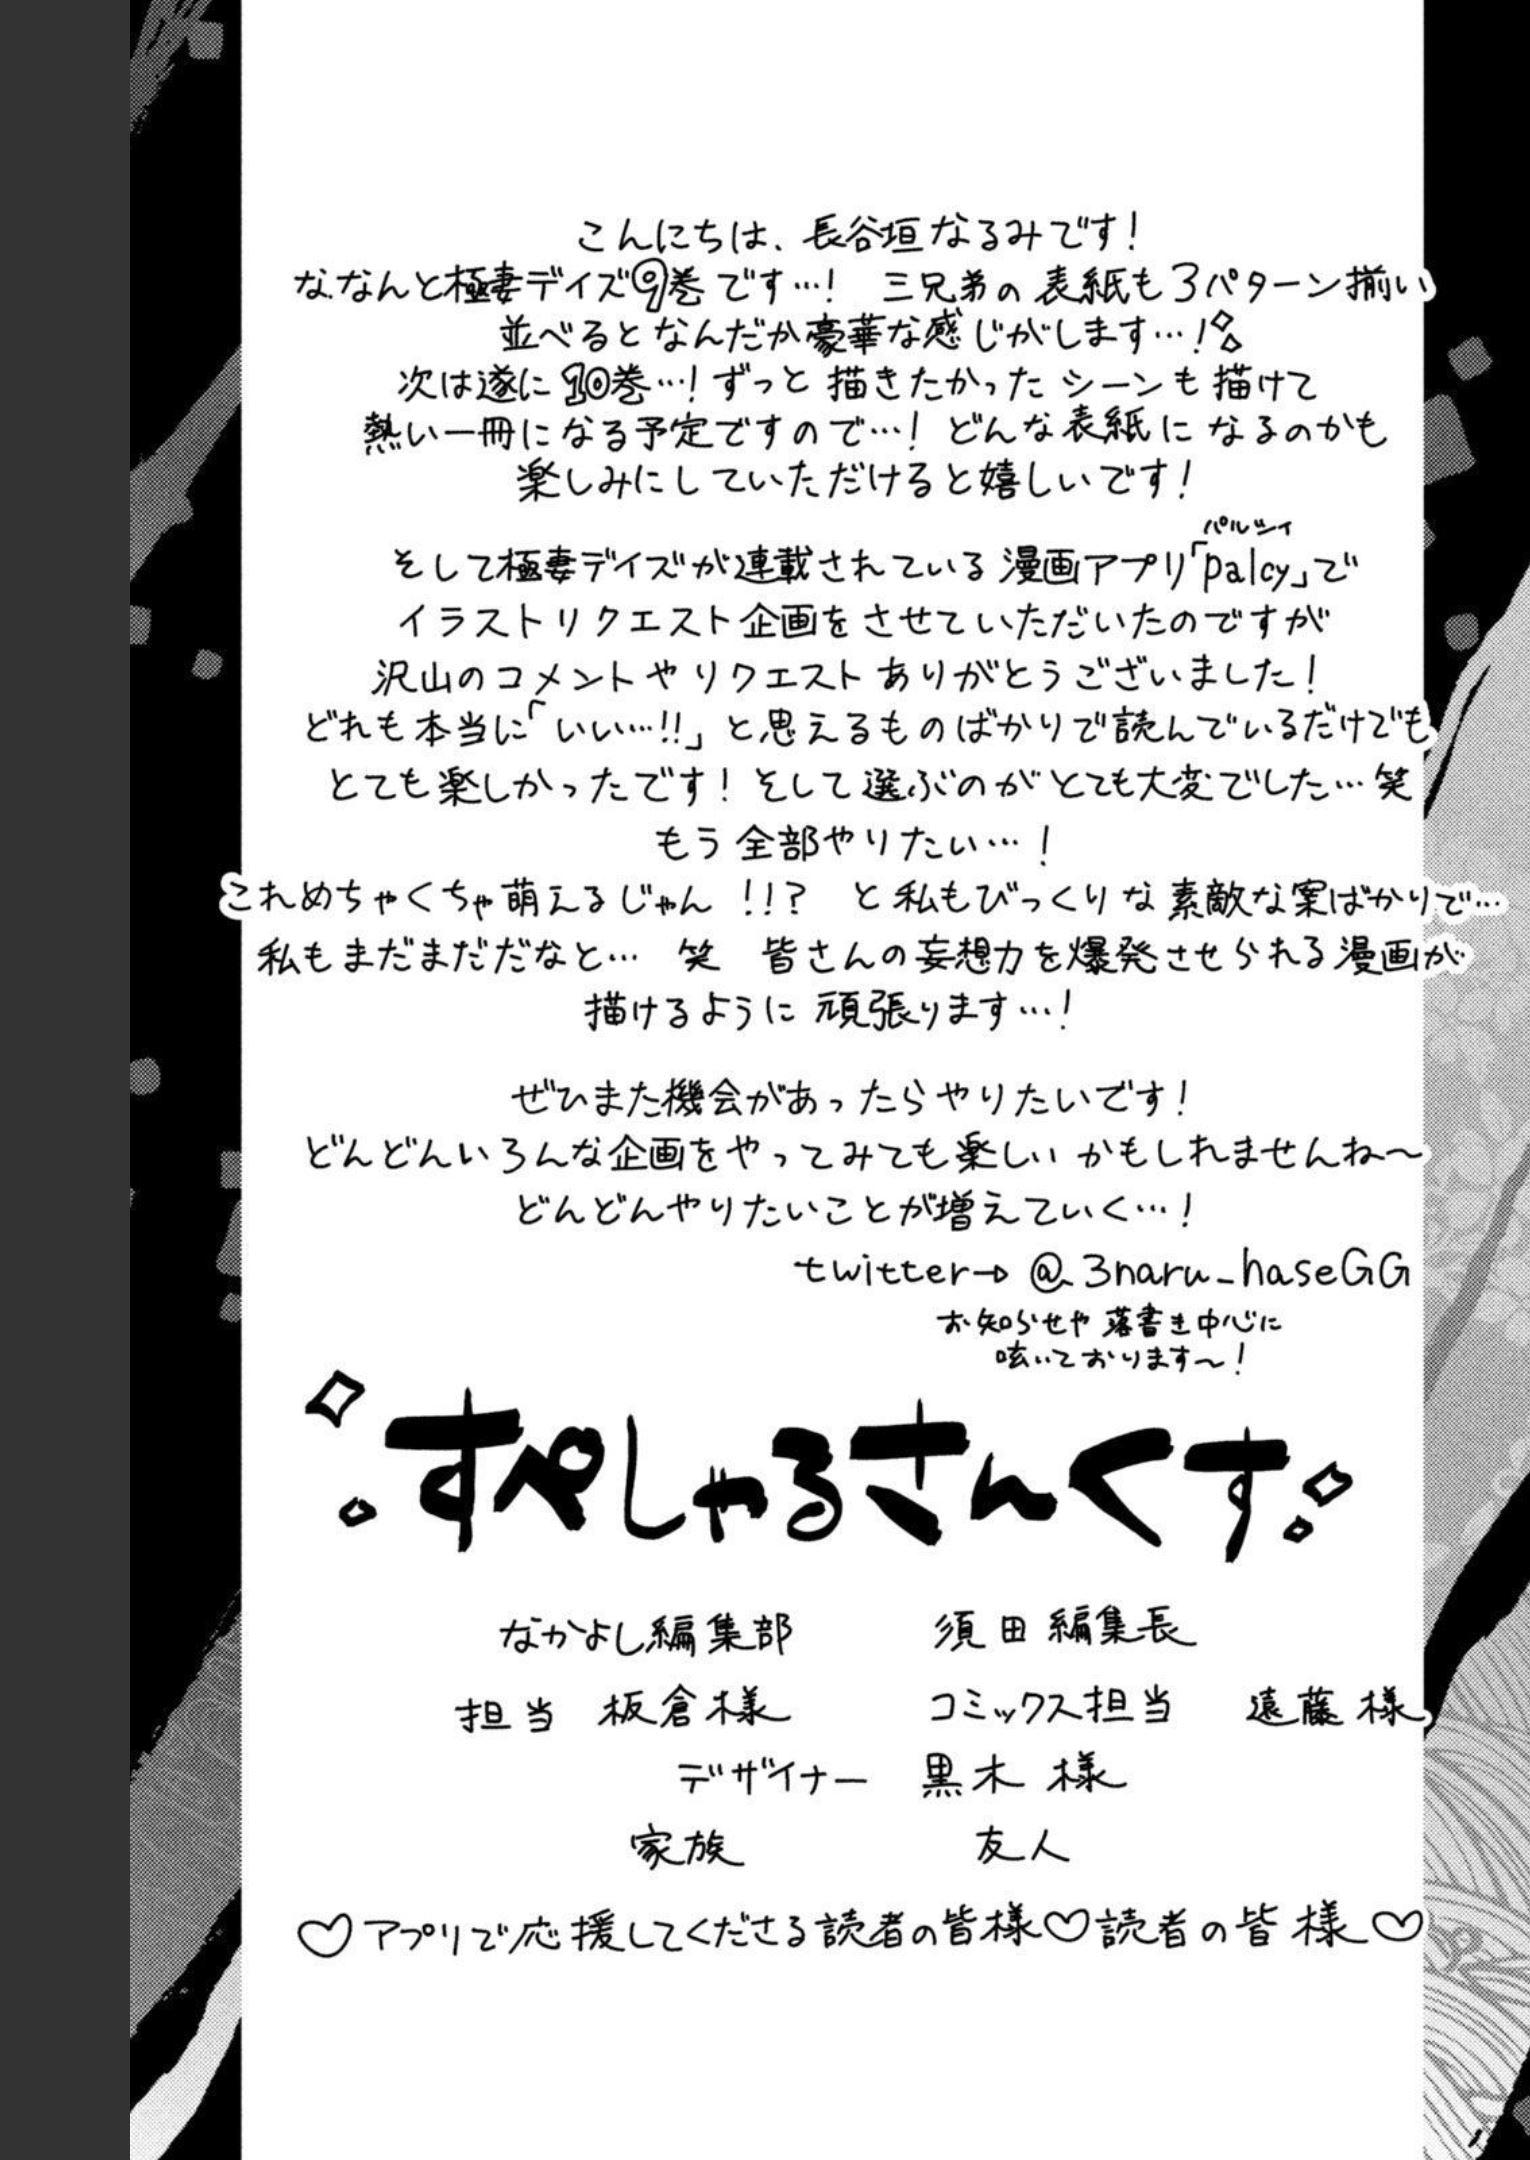 こんにちは、長谷垣なるみです!
な、なんと極妻デイズ⑨巻です…! 三兄弟の表紙も3パターン揃い
並べるとなんだか豪華な感じがします…!
次は遂に10巻…!ずっと描きたかったシーンも描けて
熱い一冊になる予定ですので…!どんな表紙になるのかも
楽しみにしていただけると嬉しいです!
パルシィ
そして極妻デイズが連載されている漫画アプリ「palcy」で
イラストリクエスト企画をさせていただいたのですが
沢山のコメントやリクエストありがとうございました!
どれも本当に「いい…!!」と思えるものばかりで読んでいるだけでも
とても楽しかったです!そして選ぶのがとても大変でした…笑
もう全部やりたい…!
これめちゃくちゃ萌えるじゃん!!? と私もびっくりな素敵な案ばかりで…
私もまだまだだなと… 笑 皆さんの妄想力を爆発させられる漫画が
描けるように頑張ります…!
ぜひまた機会があったらやりたいです!
どんどんいろんな企画をやってみても楽しいかもしれませんね〜
どんどんやりたいことが増えていく…!
twitter→ @3naru_haseGG
お知らせや落書き中心に
呟いております〜!
すぺしゃるさんくす
なかよし編集部 須田編集長
担当 板倉様 コミックス担当 遠藤様
デザイナー 黒木様
家族 友人
♡アプリで応援してくださる読者の皆様♡読者の皆様♡